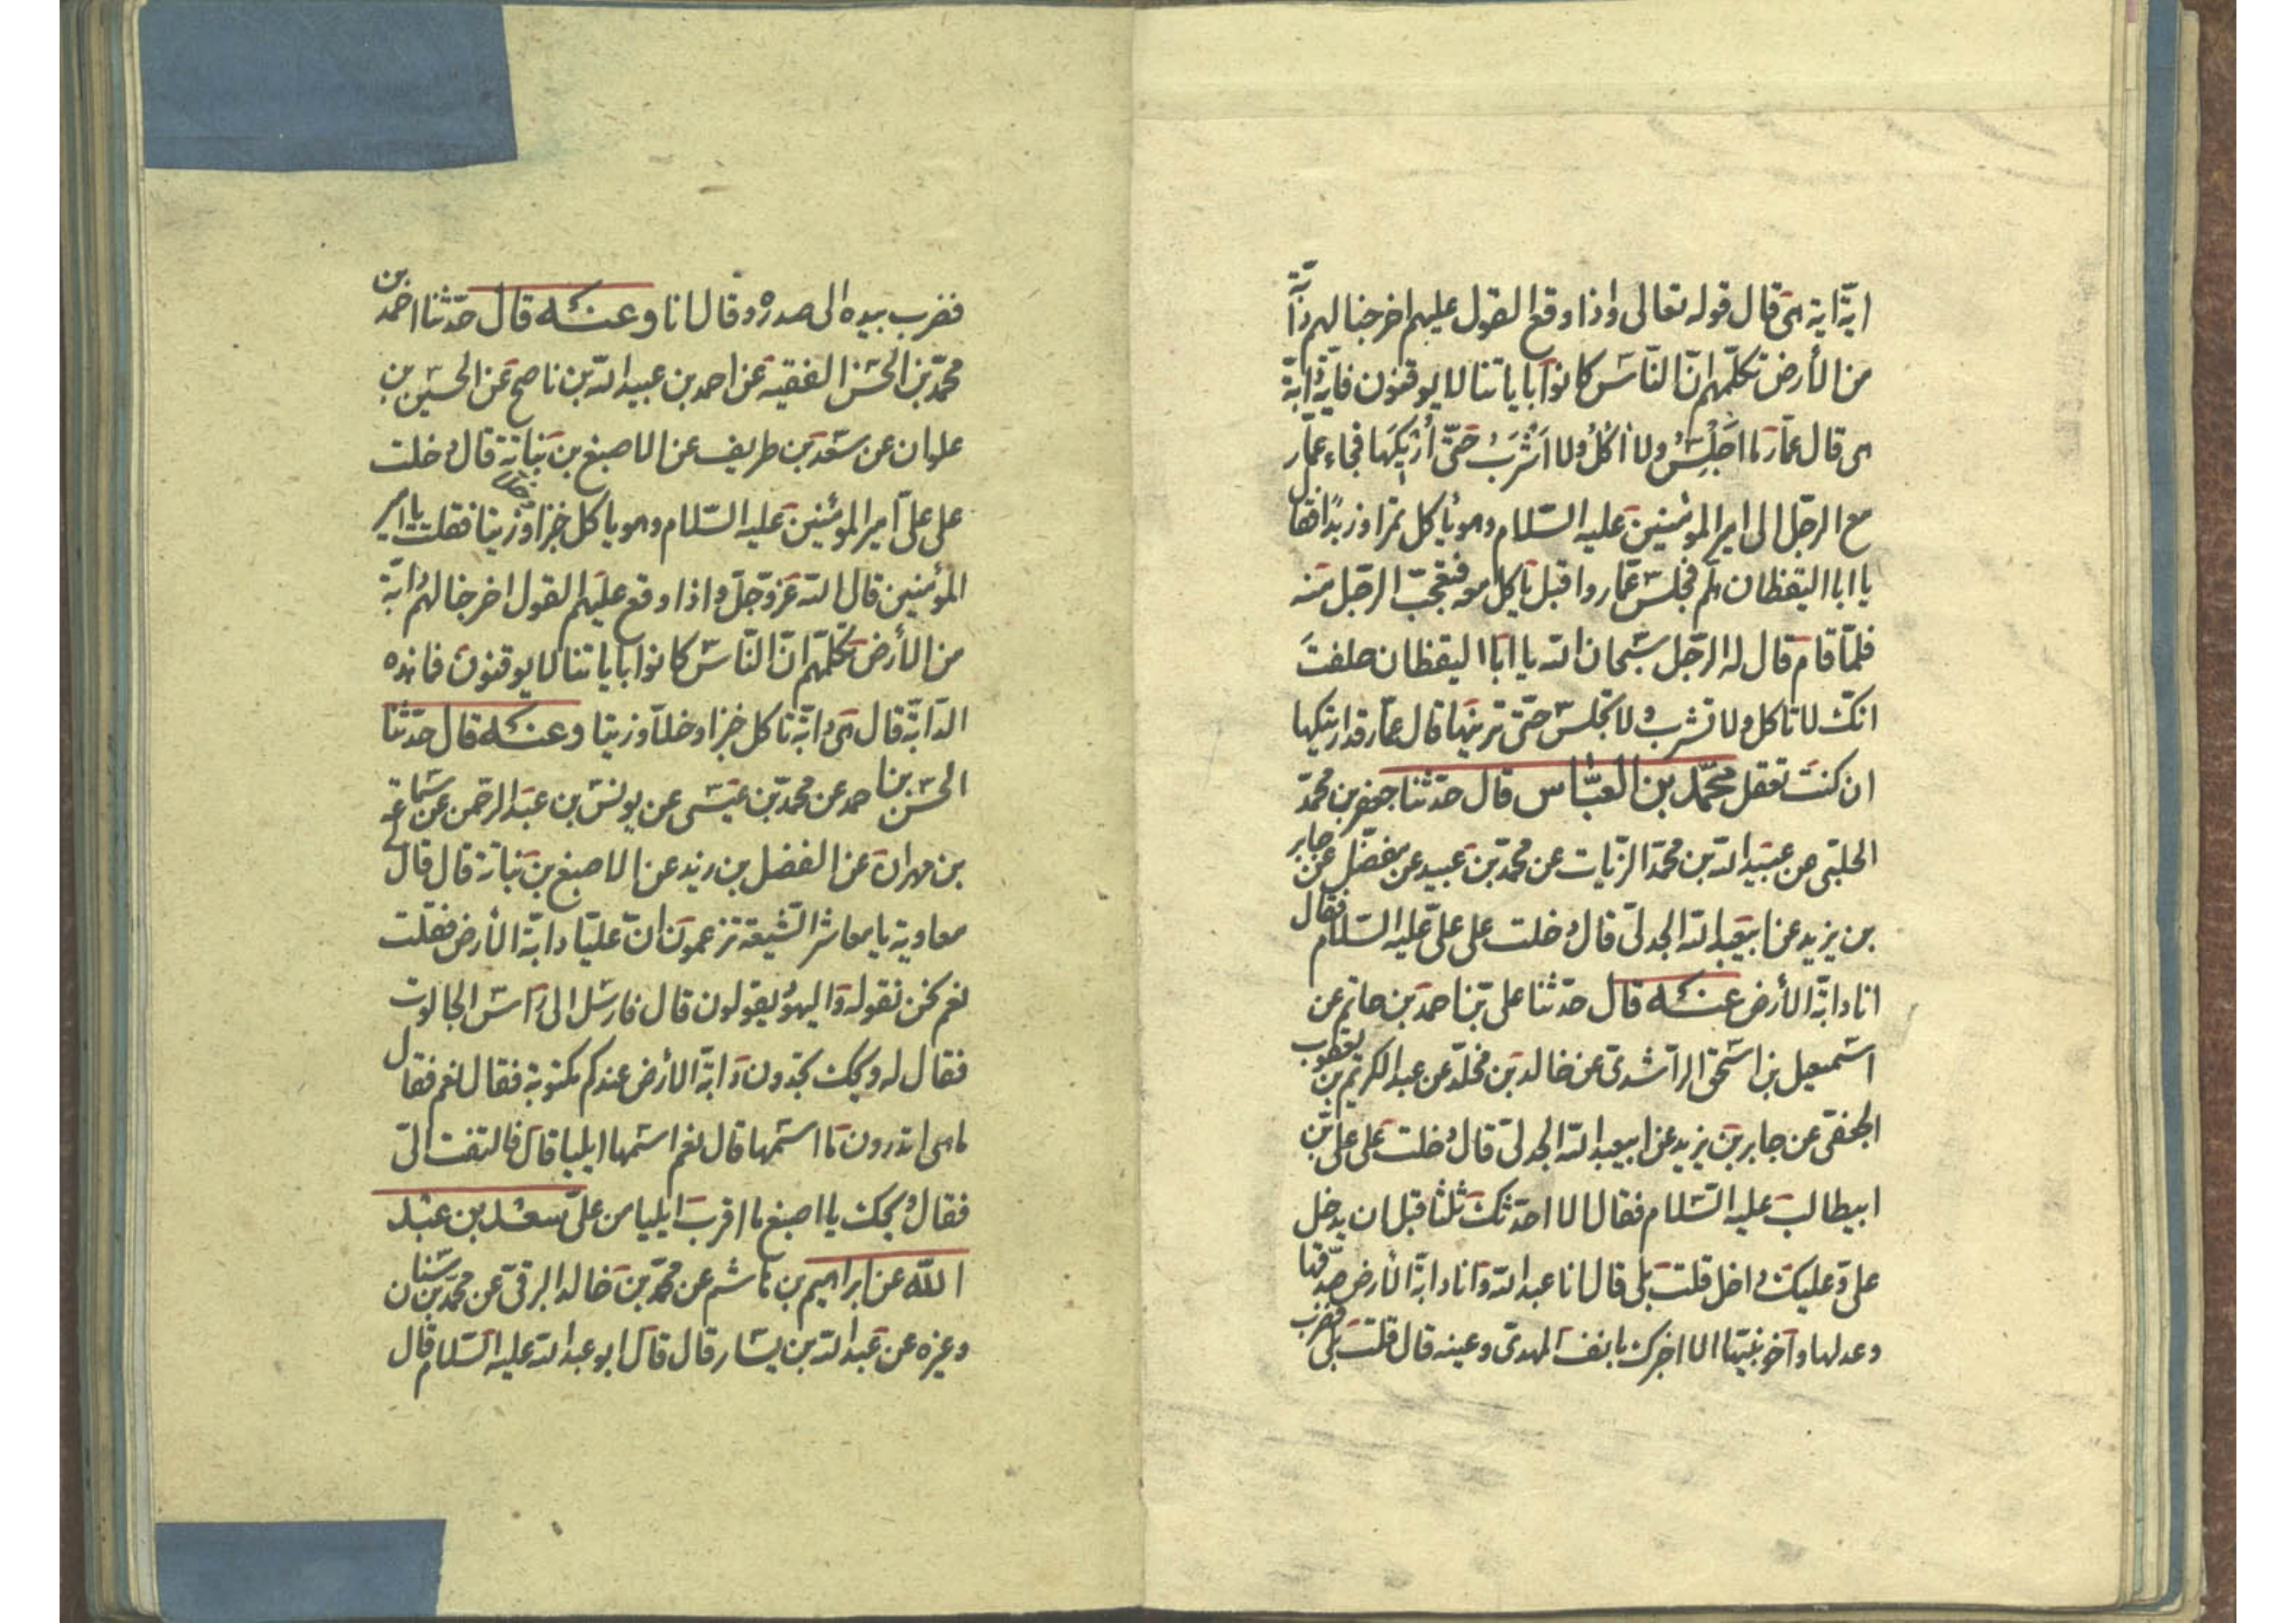 اية اية هى قال قوله تعالى واذا وقع القول عليهم اخرجنا لهم دآبّة
من الأرض تكلّمهم انّ النّاس كانوا بآياتنا لا يوقنون فاية دابة
هى قال عمّار ما اجلس ولا اكل ولا اشرب حتّى أريكها فجاء عمّار
مع الرجل الى امير المؤمنين عليه السّلام وهو ياكل تمرا وزبدًا فقال
يا ابا اليقظان هلم فجلس عمّار واقبل ياكل معه فتعجّب الرجل منه
فلمّا قام قال له الرّجل سبحان الله يا ابا اليقظان حلفت
انّك لا تاكل ولا تشرب ولا تجلس حتّى ترينيها قال عمّار قد اريتكها
ان كنت تعقل محمّد بن العبّاس قال حدّثنا جعفر بن محمّد
الحلبى عن عبيد الله بن محمّد الزّيات عن محمّد بن عبيد عن مفضّل عن جابر
بن يزيد عن ابيعبد الله الجدلىّ قال دخلت على علىّ عليه السّلام فقال
انا دابّة الأرض عنه قال حدّثنا على بن احمد بن حاتم عن
اسمعيل بن اسحق الرّاشدىّ عن خالد بن مخلّد عن عبد الكريم بن يعقوب
الجعفىّ عن جابر بن يزيد عن ابيعبد الله الجدلىّ قال دخلت على على بن
ابيطالب عليه السّلام فقال الا احدّثك ثلثا قبل ان يدخل
علىّ وعليك داخل قلت بلى قال انا عبد الله وانا دابّة الأرض صدقها
وعدلها واخو نبيّها الا اخبرك بانف المهدىّ وعينه قال قلت بلى فضرب
فضرب بيده الى صدره وقال انا وعنه قال حدّثنا احمد بن
محمّد بن الحسن الفقيه عن احمد بن عبيد الله بن ناصح عن الحسين بن
علوان عن سعد بن طريف عن الاصبغ بن نباتة قال دخلت
على علىّ امير المؤمنين عليه السّلام وهو ياكل خبزا وزيتا فقلت يا امير
المؤمنين قال الله عزّ وجلّ واذا وقع عليهم القول اخرجنا لهم دابّة
من الأرض تكلّمهم انّ النّاس كانوا بآياتنا لا يوقنون فما هذه
الدّابّة قال هى دابّة تاكل خبزا وخلّا وزيتا وعنه قال حدّثنا
الحسن بن احمد عن محمّد بن عيسى عن يونس بن عبد الرحمن عن سماعة
بن مهران عن الفضل بن زيد عن الاصبغ بن نباتة قال قال لى
معاوية يا معاشر الشّيعة تزعمون انّ عليّا دابّة الأرض فقلت
نعم نحن نقوله واليهود يقولون قال فارسل الى راس الجالوت
فقال له ويحك تجدون دابّة الأرض عندكم مكتوبة فقال نعم فقال
ما هى اتدرون ما اسمها قال نعم اسمها ايليا قال فالتفت الىّ
فقال ويحك يا اصبغ ما اقرب ايليا من علىّ سعد بن عبد
الله عن ابراهيم بن هاشم عن محمّد بن خالد البرقىّ عن محمّد بن سنان
وغيره عن عبد الله بن يسار قال قال ابو عبد الله عليه السّلام قال